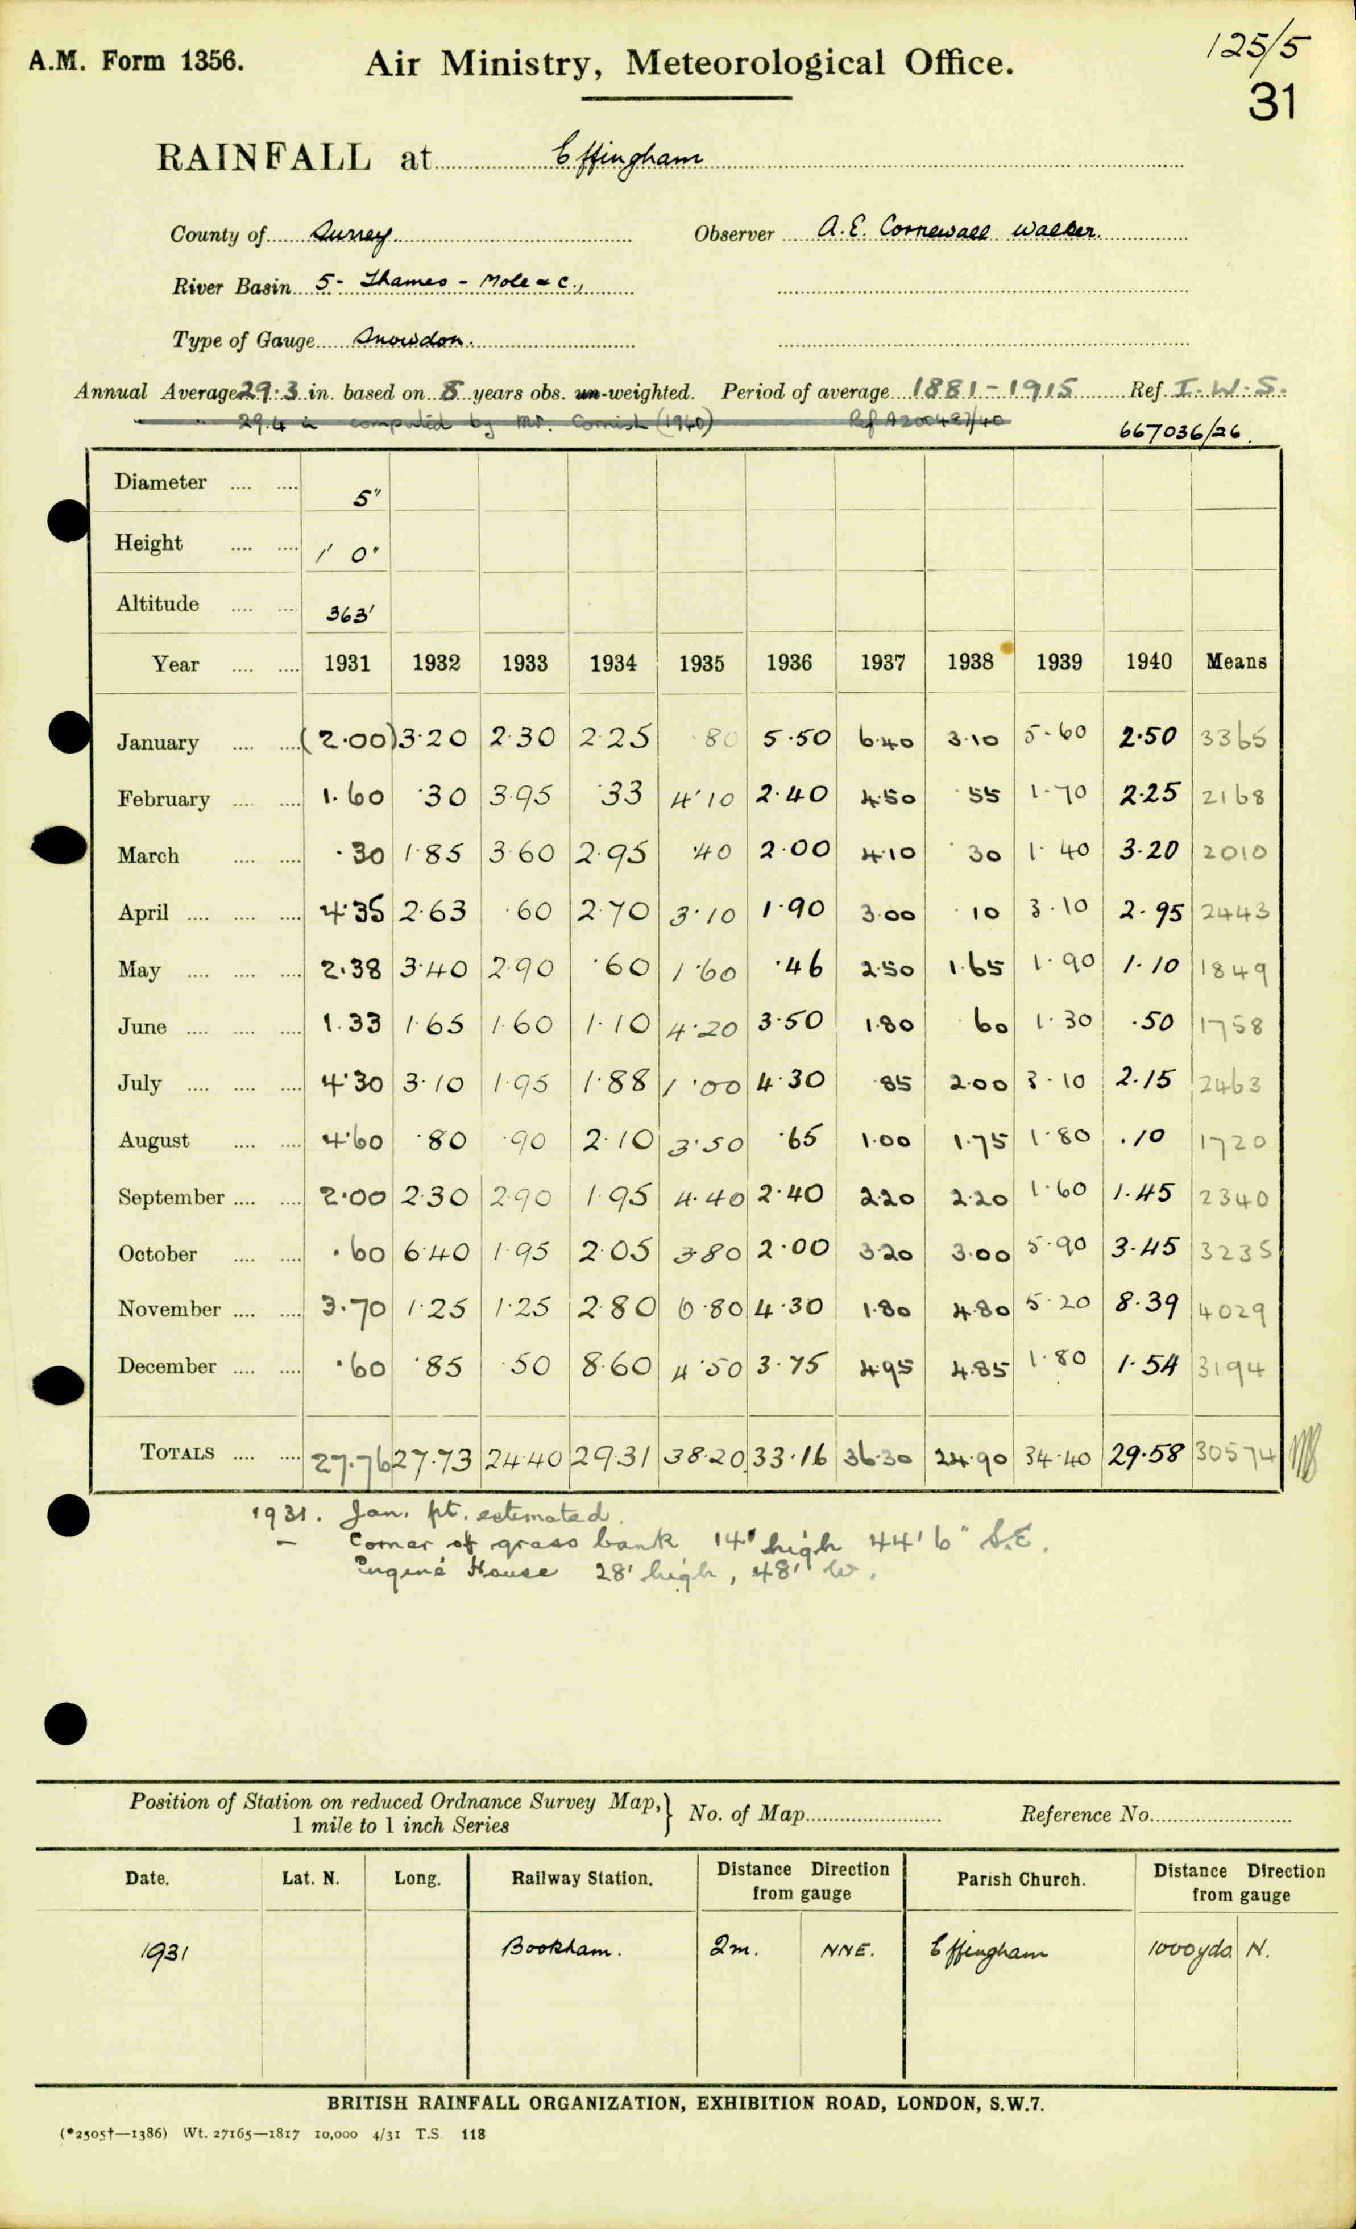 125/5
A.M. Form 1356. Air Ministry, Meteorological Office.
31
RAINFALL at Effingham
County of Surrey Observer A. E. Cornewall Walker.
River Basin 5 - Thames - Mole & c.,
Type of Gauge Snowdon.
Annual Average 29.3 in. based on 8 years obs. un-weighted. Period of average 1881-1915 Ref. I.W.S.
29.4 in computed by Mr. Cornish (1940) Ref A200487/40
667036/26.
Diameter .... .... 5"
Height .... .... 1' 0"
Altitude .... .... 363'
Year .... .... 1931 1932 1933 1934 1935 1936 1937 1938 1939 1940 Means
January .... .... (2.00) 3.20 2.30 2.25 .80 5.50 6.40 3.10 5.60 2.50 3365
February .... .... 1.60 .30 3.95 .33 4.10 2.40 4.50 .55 1.70 2.25 2168
March .... .... .30 1.85 3.60 2.95 .40 2.00 4.10 .30 1.40 3.20 2010
April .... .... .... 4.35 2.63 .60 2.70 3.10 1.90 3.00 .10 3.10 2.95 2443
May .... .... .... 2.38 3.40 2.90 .60 1.60 .46 2.50 1.65 1.90 1.10 1849
June .... .... .... 1.33 1.65 1.60 1.10 4.20 3.50 1.80 .60 1.30 .50 1758
July .... .... .... 4.30 3.10 1.95 1.88 1.00 4.30 .85 2.00 3.10 2.15 2463
August .... .... 4.60 .80 .90 2.10 3.50 .65 1.00 1.75 1.80 .10 1720
September .... .... 2.00 2.30 2.90 1.95 4.40 2.40 2.20 2.20 1.60 1.45 2340
October .... .... .60 6.40 1.95 2.05 3.80 2.00 3.20 3.00 5.90 3.45 3235
November .... .... 3.70 1.25 1.25 2.80 6.80 4.30 1.80 4.80 5.20 8.39 4029
December .... .... .60 .85 .50 8.60 4.50 3.75 4.95 4.85 1.80 1.54 3194
TOTALS .... .... 27.76 27.73 24.40 29.31 38.20 33.16 36.30 24.90 34.40 29.58 30574
1931. Jan. pt. estimated.
— Corner of grass bank 14' high 44' 6" S.E.
Engine House 28' high, 48' W.
Position of Station on reduced Ordnance Survey Map,} No. of Map Reference No.
1 mile to 1 inch Series
Date. Lat. N. Long. Railway Station. Distance Direction from gauge Parish Church. Distance Direction from gauge
1931 Bookham. 2m. NNE. Effingham 1000yds N.
BRITISH RAINFALL ORGANIZATION, EXHIBITION ROAD, LONDON, S.W.7.
(*2505†—1386) Wt. 27165—1817 10,000 4/31 T.S. 118